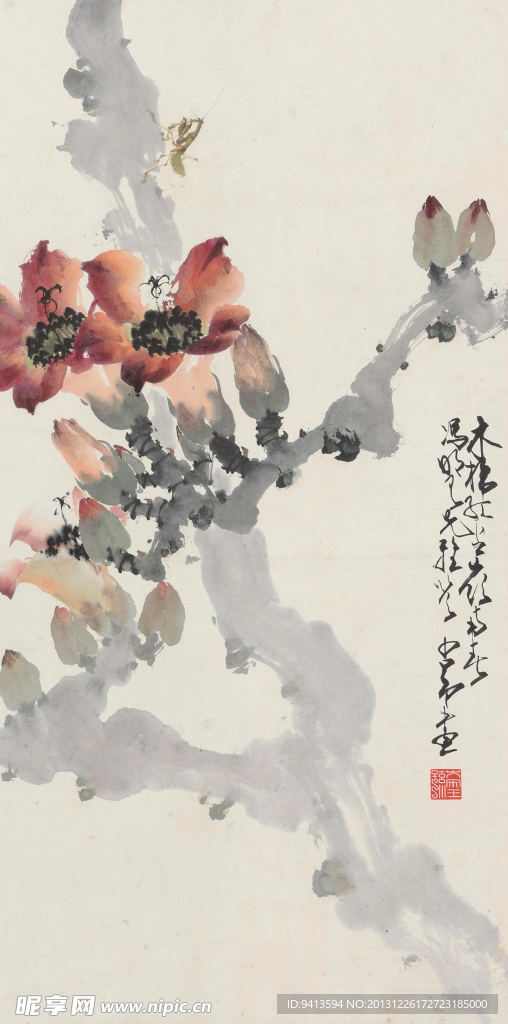 木棉紅占嶺南春
兄雅教 少昂畫
昵享网 www.nipic.cn
ID:9413594 NO:20131226172723185000